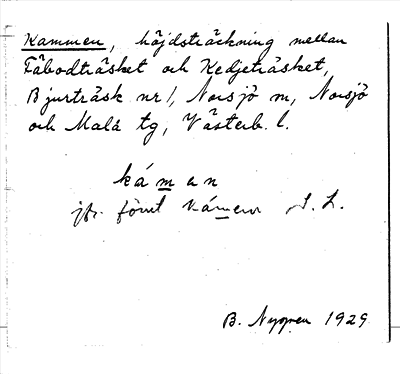 Kammen, höjdsträckning mellan
Fäbodträsket och Kedjeträsket,
Bjurträsk nr 1, Norsjö sn, Norsjö
och Malå tg, Västerb. l.
kámen
jfr förut
B. Nygren 1929